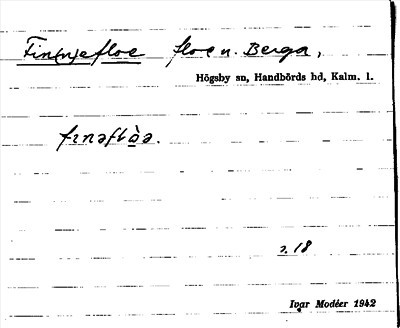 Fin(n)efloe floe n. Berga,
Högsby sn, Handbörds hd, Kalm. l.
finəfɫòə.
s. 18
Ivar Modéer 1942